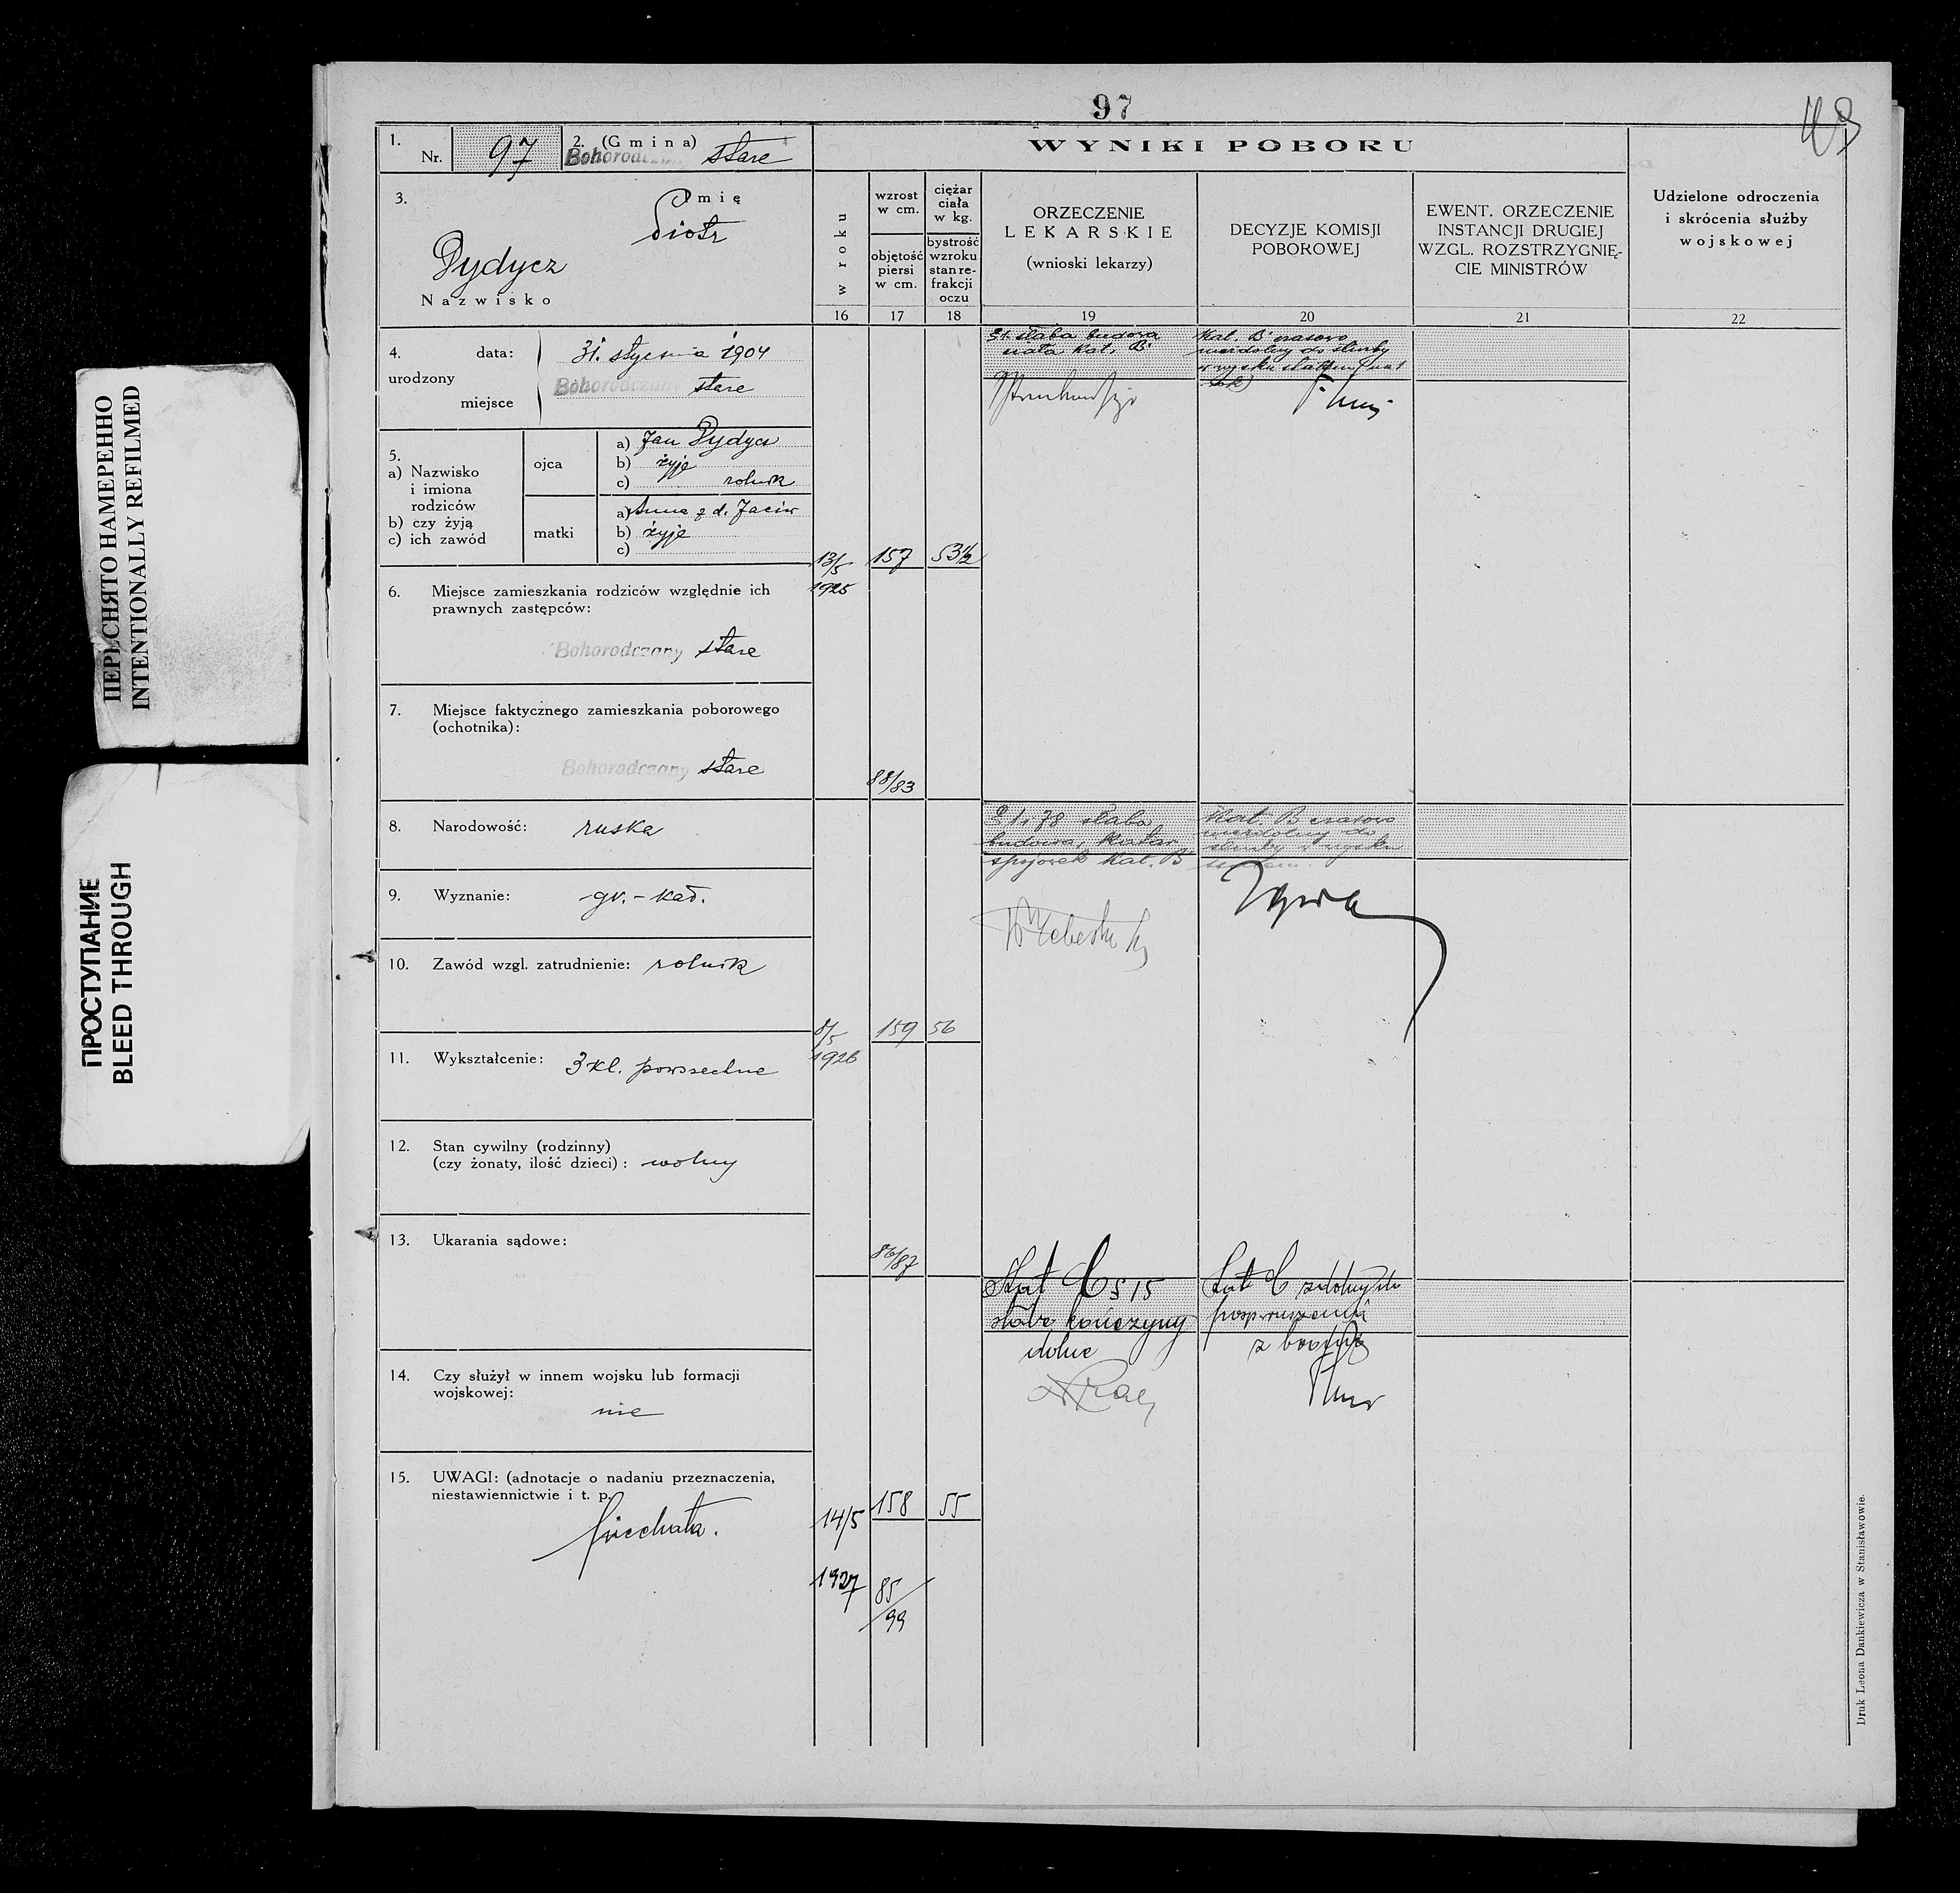 97
ПЕРЕСНЯТО НАМЕРЕННО
INTENTIONALLY REFILMED
ПРОСТУПАНИЕ
BLEED THROUGH
1.
Nr. 97
2. (Gmina)
Bohorodczany stare
3. Imię
Piotr
Dydycz
Nazwisko
4. data: 31. stycznia 1904
urodzony
Bohorodczany stare
miejsce
5.
a) Nazwisko
i imiona
rodziców
b) czy żyją
c) ich zawód
ojca
a) Jan Dydycz
b) żyje
c) rolnik
matki
a) Anna z d. Jaciw
b) żyje
c)
6. Miejsce zamieszkania rodziców względnie ich
prawnych zastępców:
Bohorodczany stare
7. Miejsce faktycznego zamieszkania poborowego
(ochotnika):
Bohorodczany stare
8. Narodowość: ruska
9. Wyznanie: gr.-kat.
10. Zawód wzgl. zatrudnienie: rolnik
11. Wykształcenie: 3 kl. powszechne
12. Stan cywilny (rodzinny)
(czy żonaty, ilość dzieci): wolny
13. Ukarania sądowe:
14. Czy służył w innem wojsku lub formacji
wojskowej:
nie
15. UWAGI: (adnotacje o nadaniu przeznaczenia,
niestawiennictwie i t. p.
piechota.
WYNIKI POBORU
w roku
16
wzrost
w cm.
objętość
piersi
w cm.
17
ciężar
ciała
w kg.
bystrość
wzroku
stan re-
frakcji
oczu
18
ORZECZENIE
LEKARSKIE
(wnioski lekarzy)
19
DECYZJE KOMISJI
POBOROWEJ
20
EWENT. ORZECZENIE
INSTANCJI DRUGIEJ
WZGL. ROZSTRZYGNIĘ-
CIE MINISTRÓW
21
Udzielone odroczenia
i skrócenia służby
wojskowej
22
13/5 157 53½
1925
88/83
słaba budowa
ciała Kat. B
Kat. B czasowo
niezdolny do służby
8/5 159 56
1926
86/87
słaba
budowa, katar
spojówek Kat. B
Kat B czasowo
niezdolny do
służby w wojsku
stałem.
14/5 158 55
1927 85/99
Kat C § 15
słabe kończyny
dolne
Kat C zdolny do
posp. ruszenia
z bronią
Druk Leona Dankiewicza w Stanisławowie.